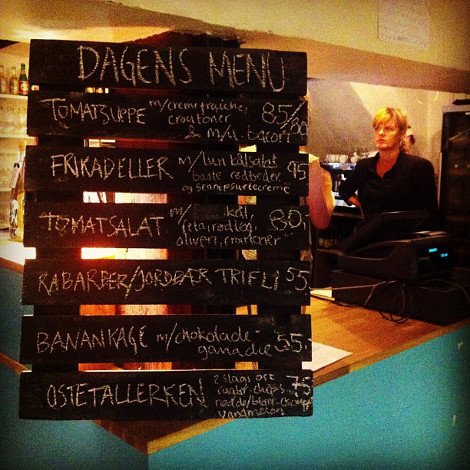 DAGENS MENU
TOMATSUPPE m/cremefraiche, 85/
croutoner
& m/u. bacon
FRIKADELLER m/lun kålsalat 95
bagte rødbeder
og sennepsurtecreme
TOMATSALAT m/ kål, 80,-
feta, rødløg,
oliven, croutoner
RABARBER/JORDBÆR TRIFLI 55,-
BANANKAGE m/chokolade- 55,-
ganache
OSTETALLERKEN 2 slags ost 75
chips